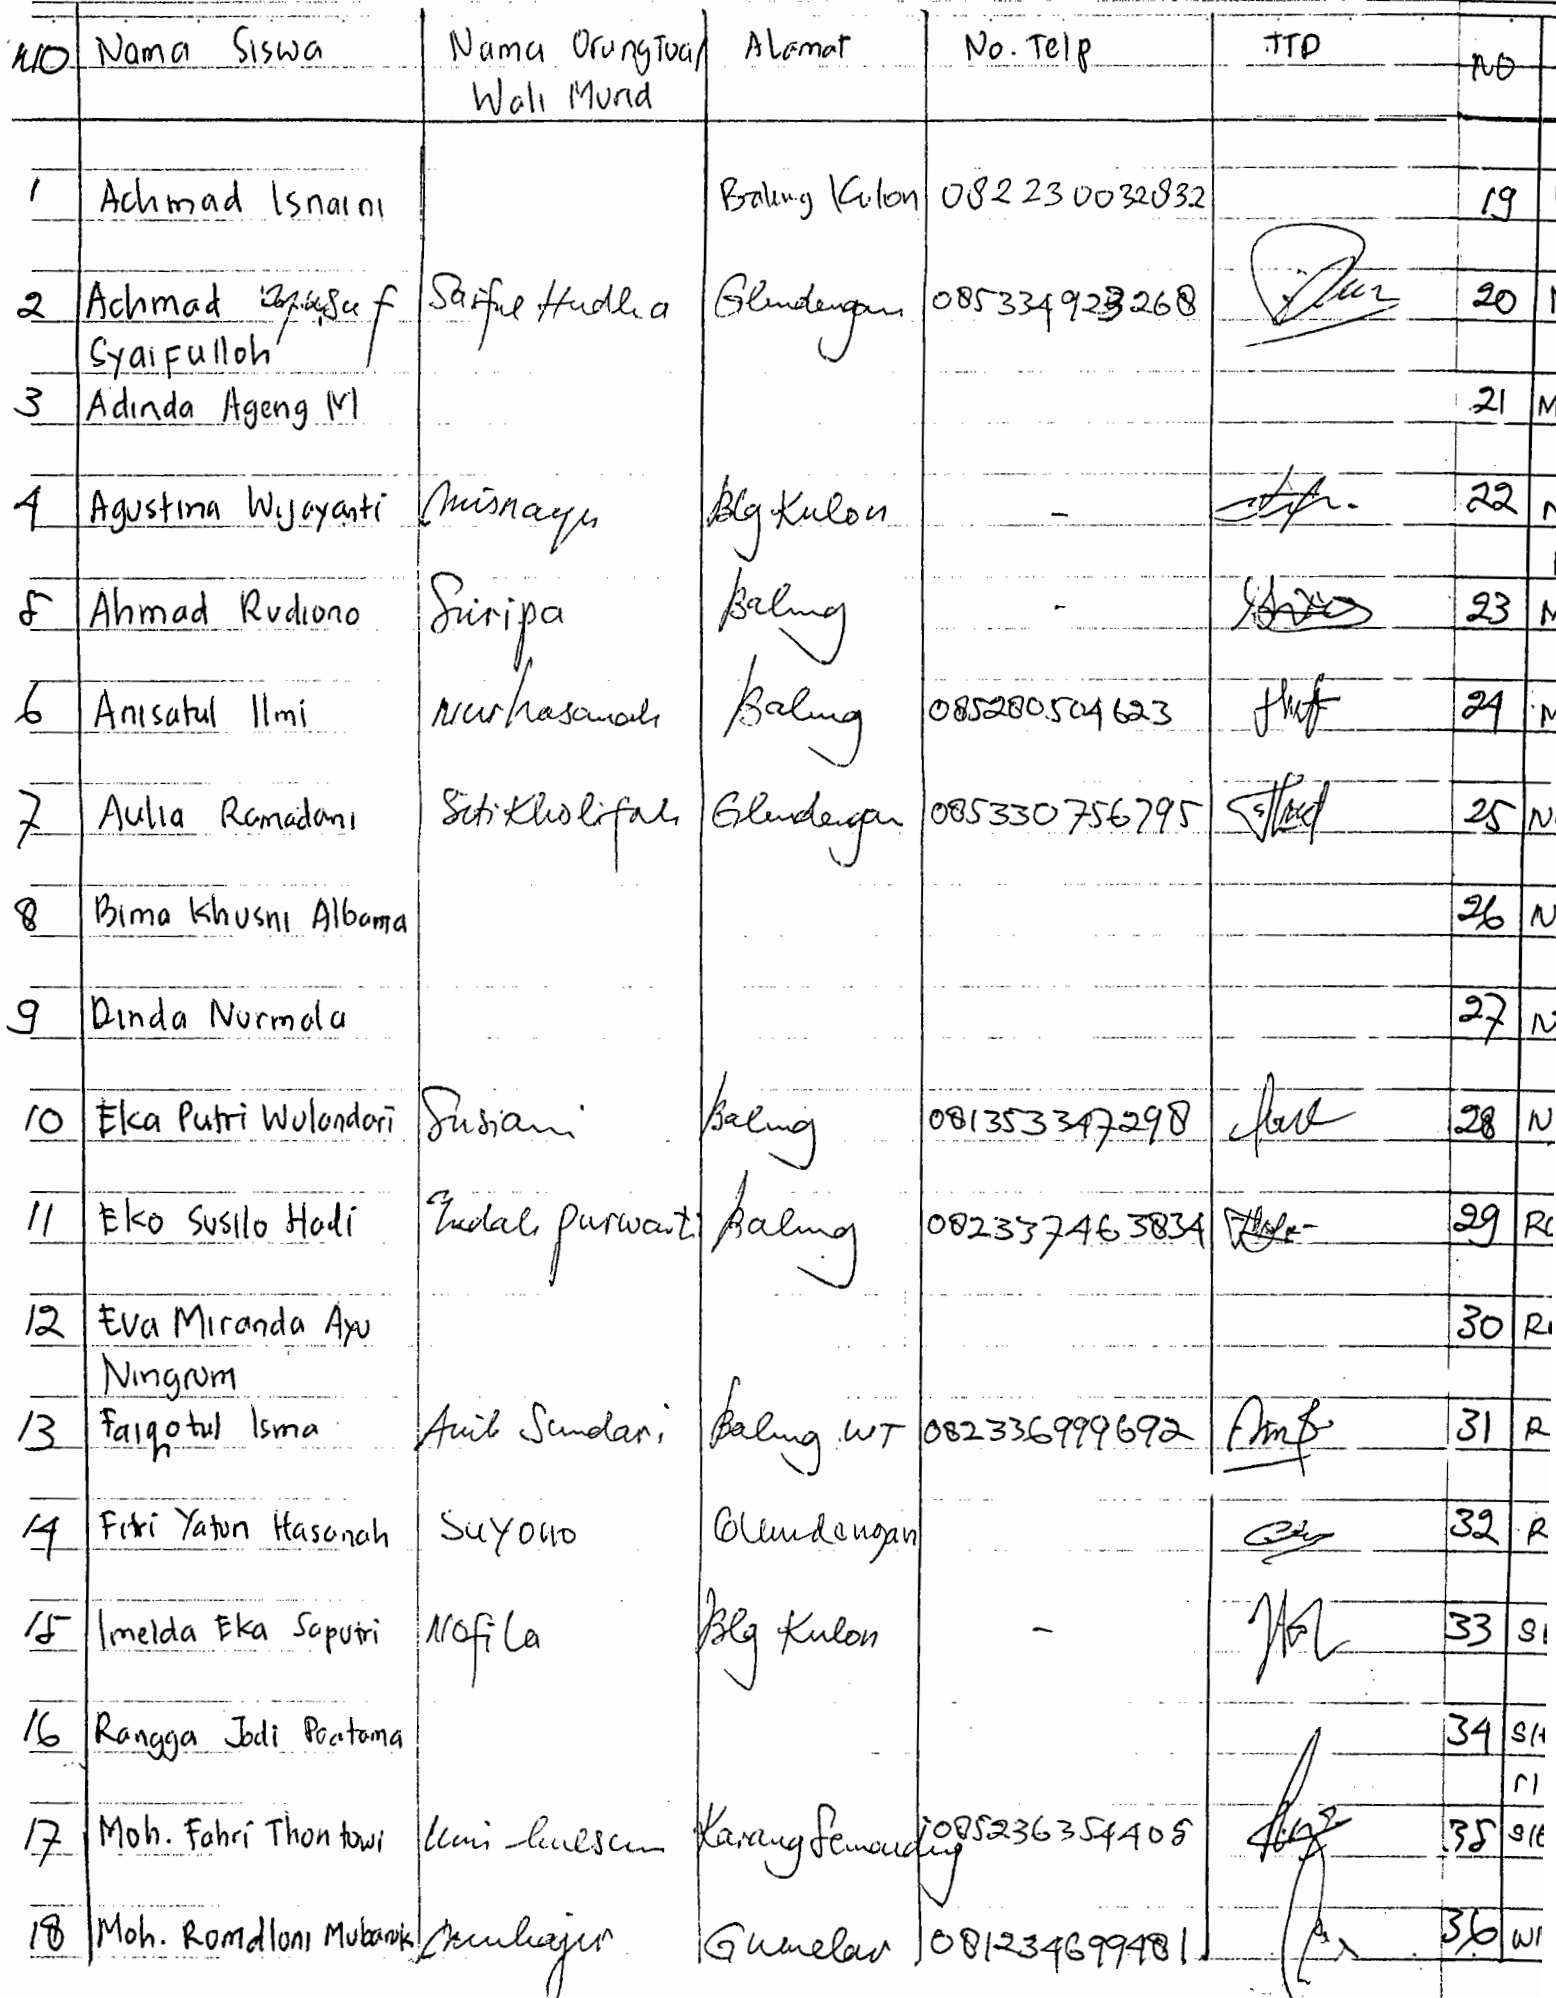 NO Nama Siswa Nama Orang Tua/ Alamat No. Telp TTD NO
Wali Murid
1 Achmad Isnaini Balung Kulon 082230032832 19
2 Achmad Saiful Hudha Glundengan 085334923268 20
Syaifulloh
3 Adinda Ageng M 21 M
4 Agustina Wijayanti Misnayu Blg Kulon - 22
5 Ahmad Rudiono Suripa Balung - 23 M
6 Anisatul Ilmi Nurhasanah Balung 085280504623 24 M
7 Aulia Ramadani Siti Kholifah Glundengan 085330756795 25 N
8 Bima Khusni Albama 26 N
9 Dinda Nurmala 27 N
10 Eka Putri Wulandari Susiani Balung 081353347298 28 N
11 Eko Susilo Hadi Indah Purwati Balung 082337463834 29 R
12 Eva Miranda Ayu 30 R
Ningrum
13 Faiqotul Isma Anik Sundari Balung WT 082336999692 31 R
14 Fitri Yatun Hasanah Suyono Glundengan 32 R
15 Imelda Eka Saputri Nofila Blg Kulon - 33 S
16 Rangga Jodi Pratama 34 S
17 Moh. Fahri Thontowi Umi Karang Semanding 085236354405 35 S
18 Moh. Romdloni Mubarok Gumelar 081234699481 36 W